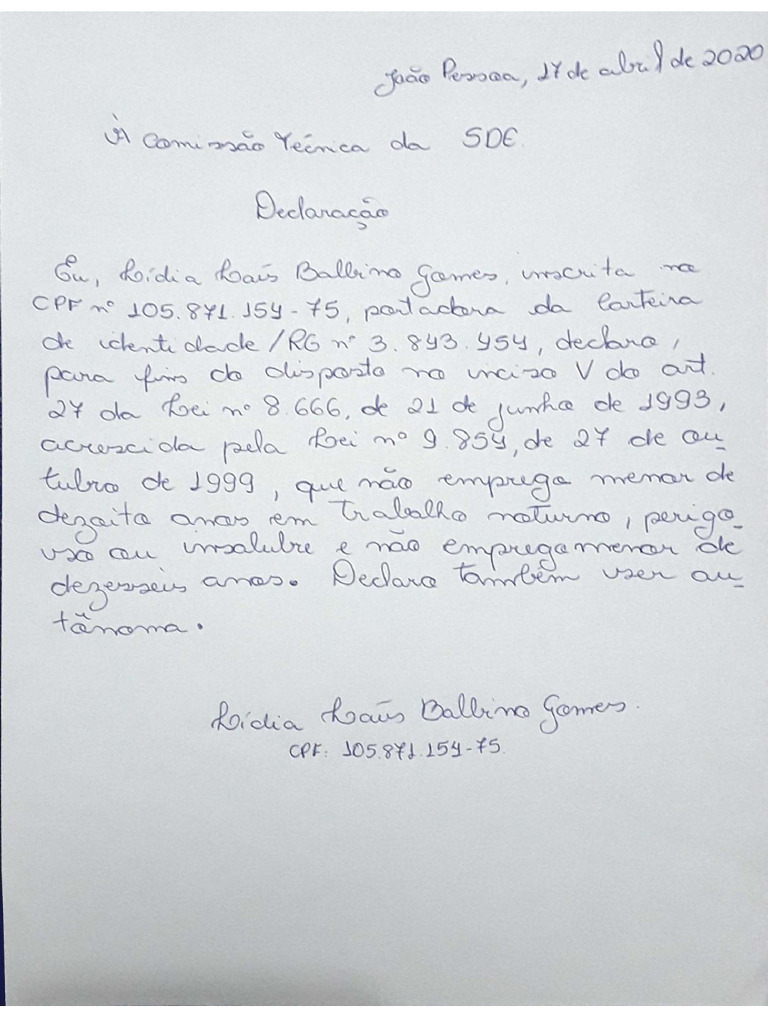 João Pessoa, 17 de abril de 2020
À Comissão Técnica da SDE.
Declaração
Eu, Lídia Laís Balbino Gomes, inscrita no
CPF nº 105.871.154-75, portadora da Carteira
de identidade/RG nº 3.843.454, declaro,
para fins do disposto no inciso V do art.
27 da Lei nº 8.666, de 21 de junho de 1993,
acrescida pela Lei nº 9.854, de 27 de ou_
tubro de 1999, que não emprego menor de
dezoito anos em trabalho noturno, perigo_
so ou insalubre e não emprego menor de
dezesseis anos. Declaro também ser au_
tônoma.
Lídia Laís Balbino Gomes.
CPF: 105.871.154-75.